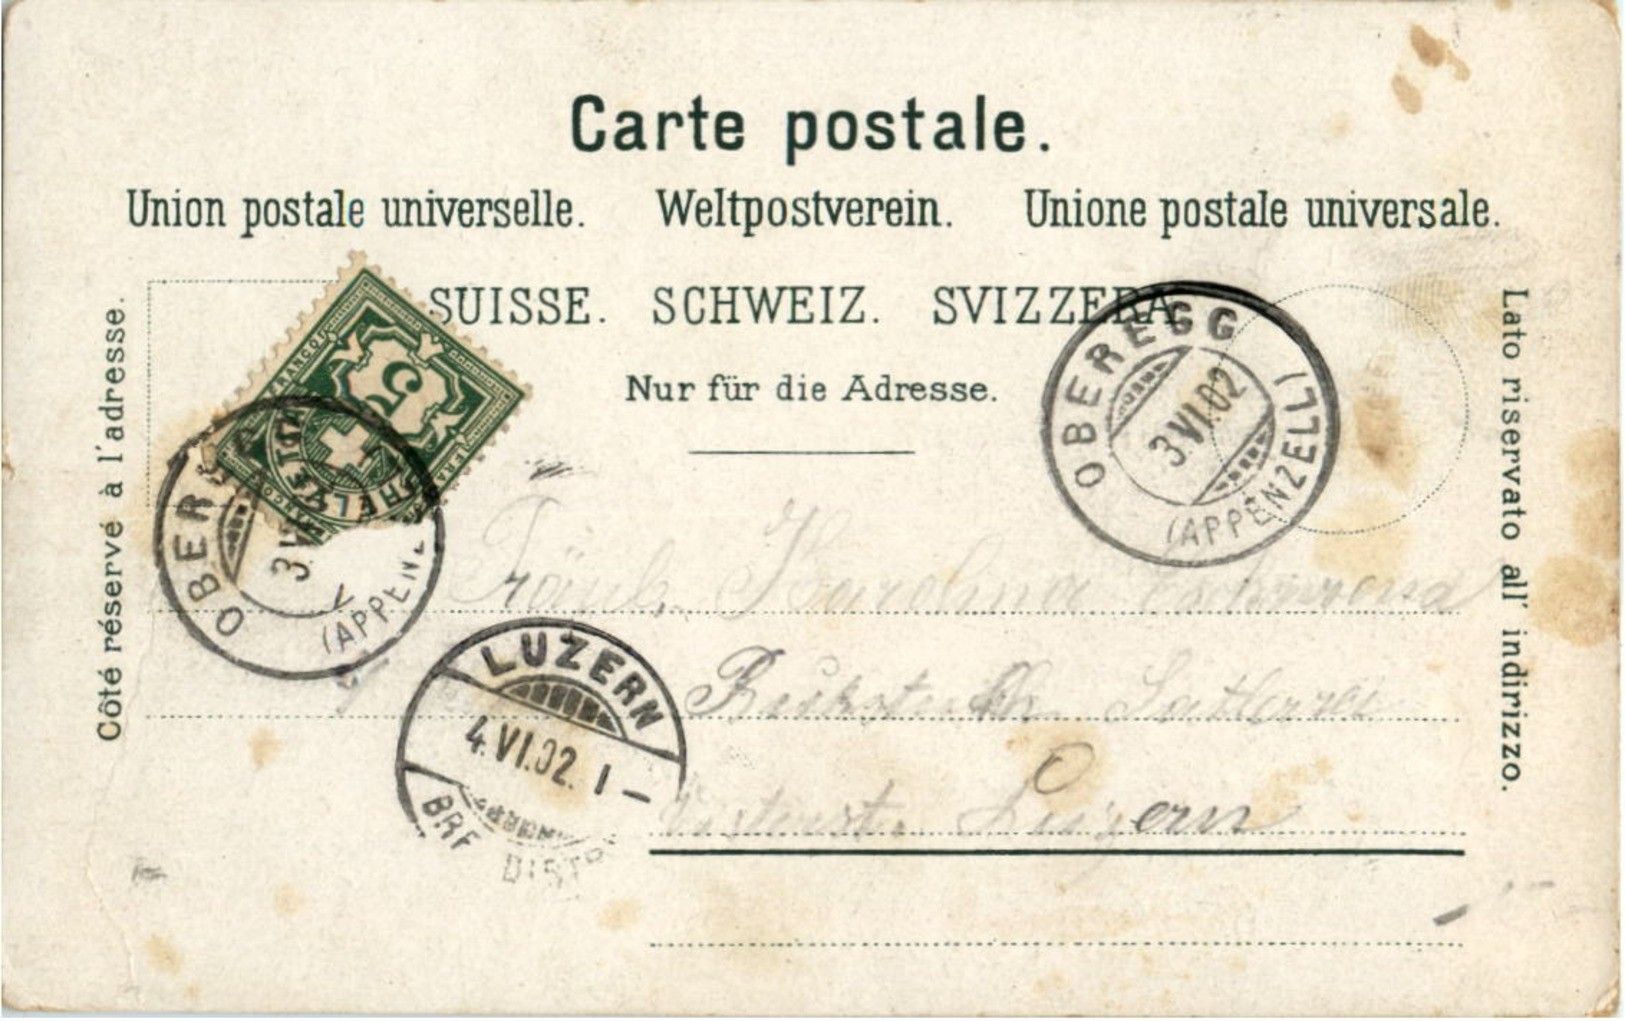 Carte postale.
Union postale universelle. Weltpostverein. Unione postale universale.
SUISSE. SCHWEIZ. SVIZZERA
Nur für die Adresse.
Côté réservé à l'adresse.
Lato riservato all' indirizzo.
FRANCO
5
HELVETIA
OBEREGG
3 VI
(APPEN
OBEREGG
3 VI 02
(APPENZELL)
LUZERN
4.VI.02. I -
BRF DISTR
Fräul. Karolina
Luzern